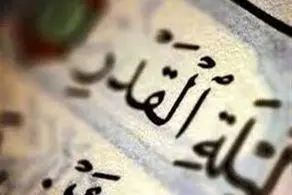 لَيْلَةِ الْقَدْرِ